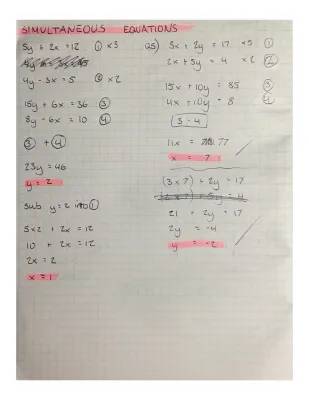 SIMULTANEOUS EQUATIONS
5y + 2x = 12 ① x3
4y - 3x = 5 ② x2
15y + 6x = 36 ③
8y - 6x = 10 ④
③ + ④
23y = 46
y = 2
Sub y = 2 into ①
5x2 + 2x = 12
10 + 2x = 12
2x = 2
x = 1
Q5) 3x + 2y = 17 x5 ①
2x + 5y = 4 x2 ②
15x + 10y = 85 ③
4x + 10y = 8 ④
3 - 4
11x = 77
x = 7
(3x7) + 2y = 17
21 + 2y = 17
2y = -4
y = -2